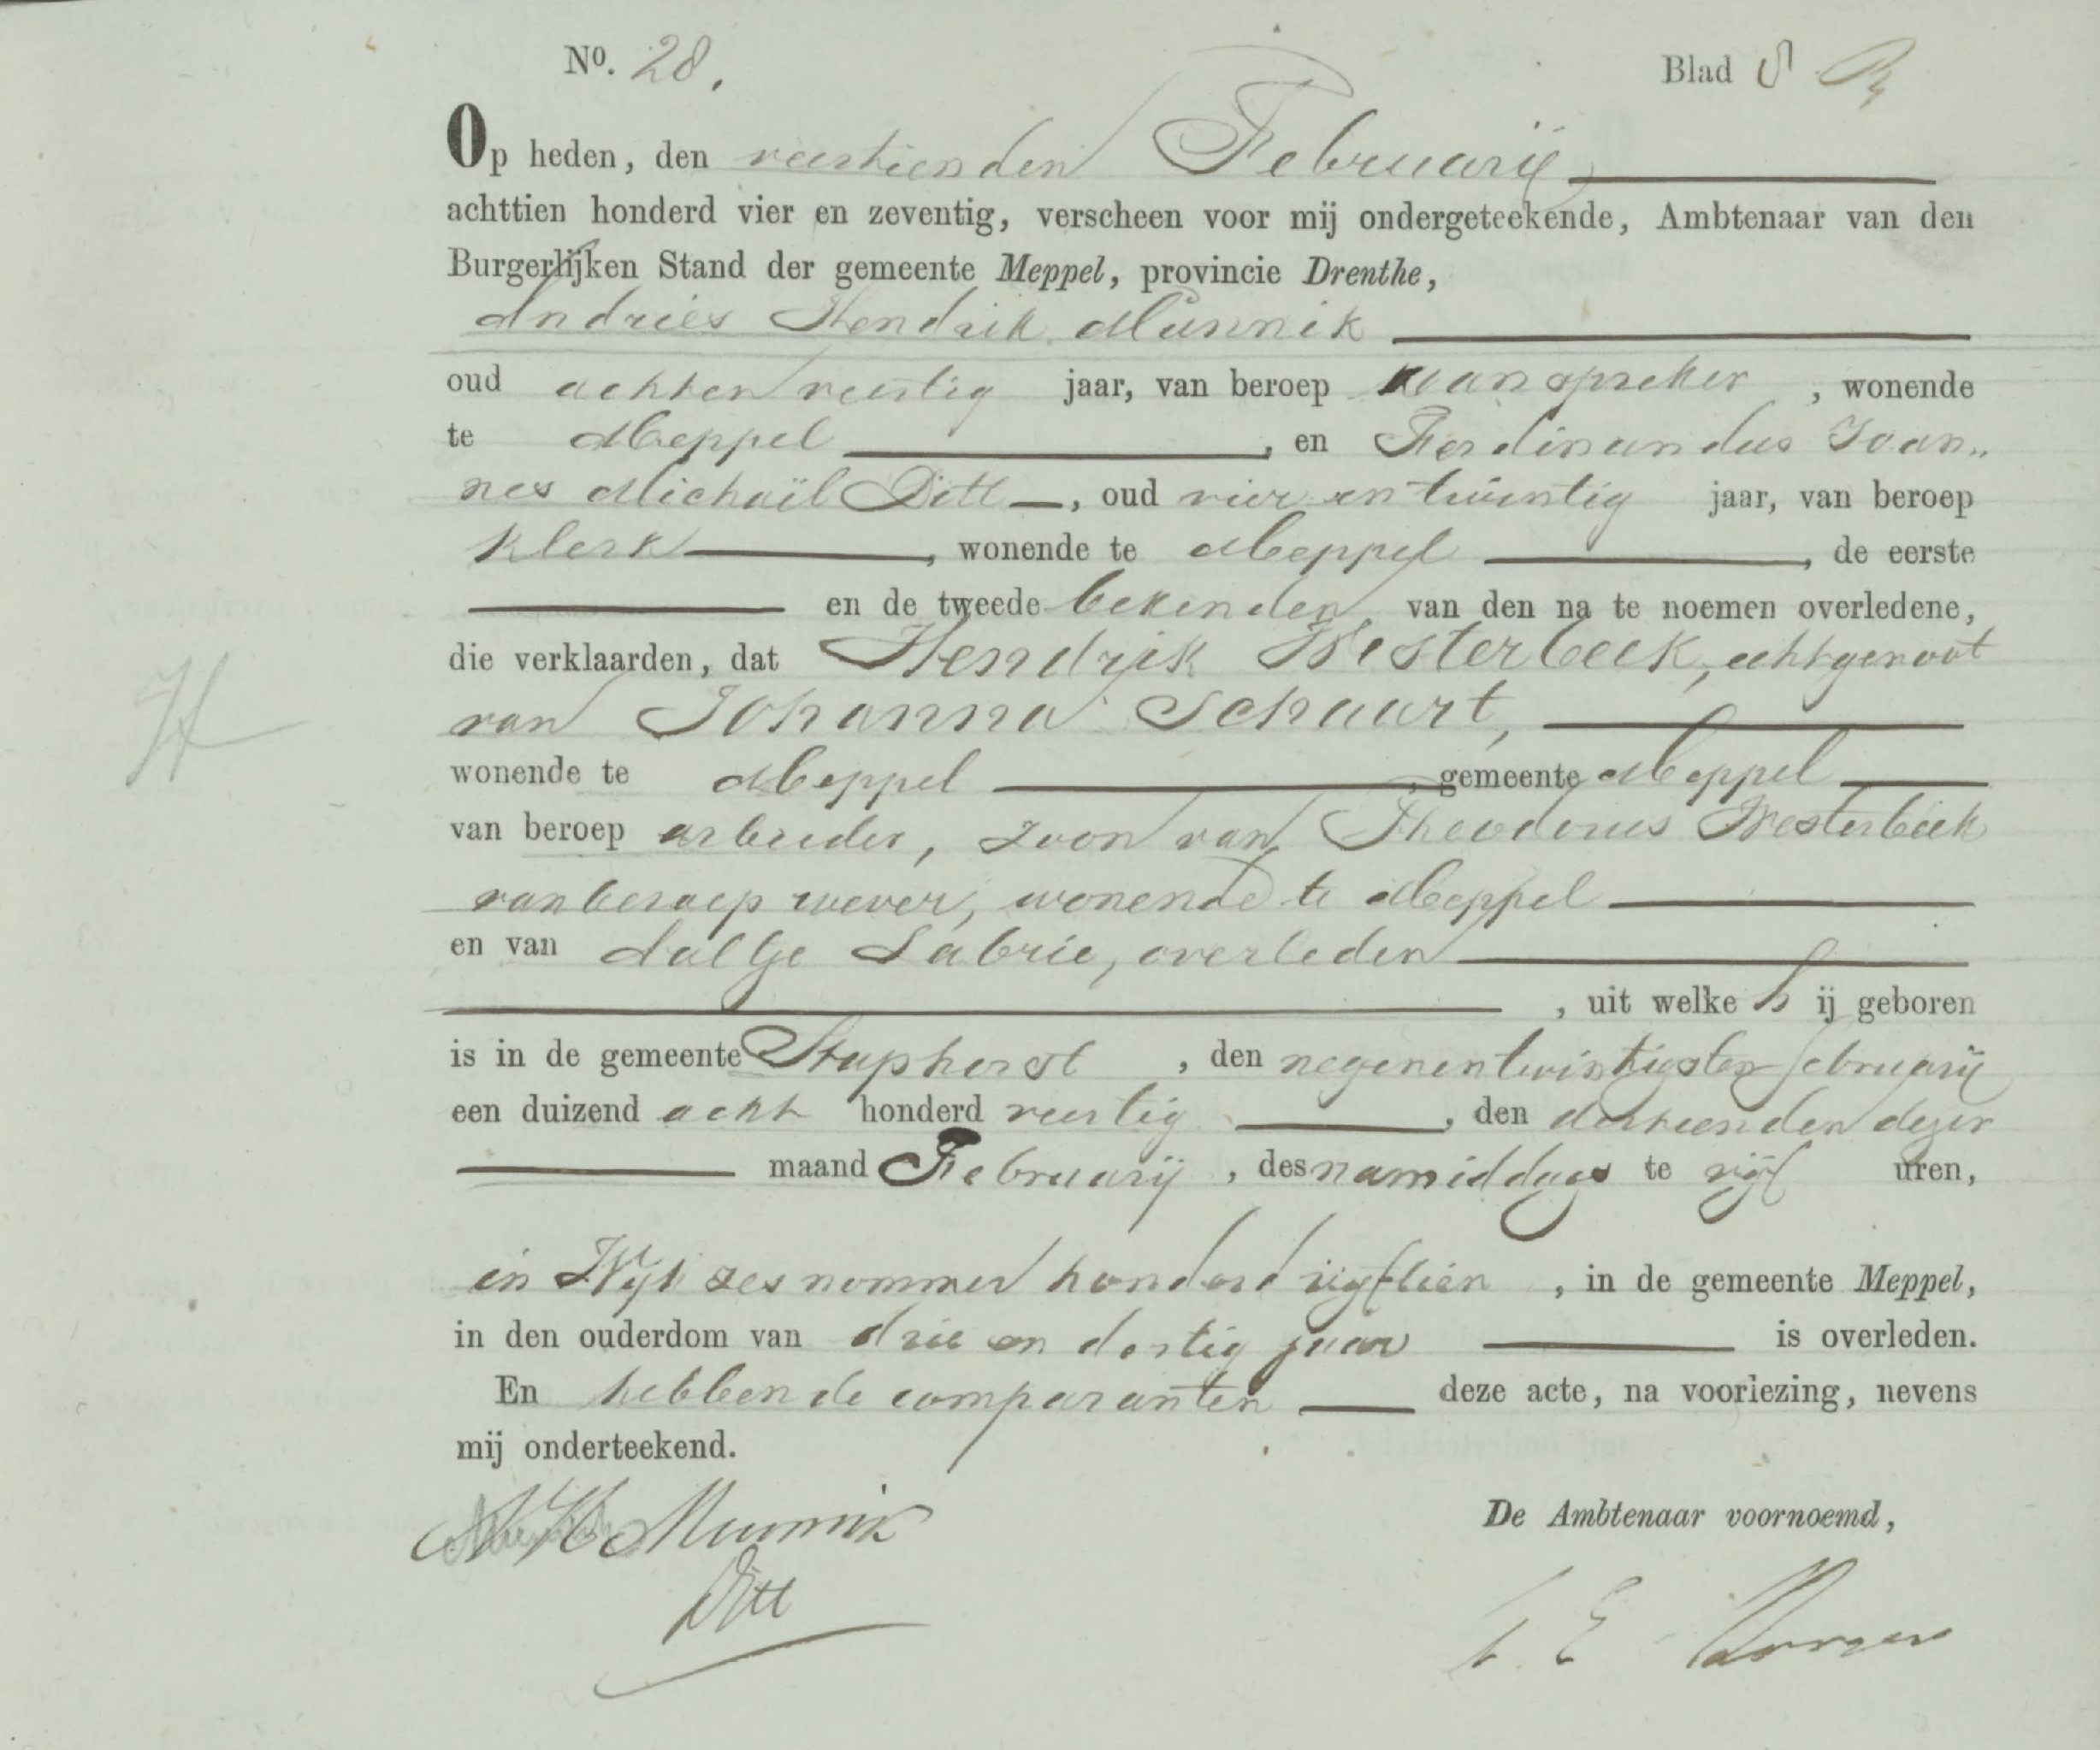 No. 28. Blad 8
Op heden, den veertienden Februarij
achttien honderd vier en zeventig, verscheen voor mij ondergeteekende, Ambtenaar van den
Burgerlijken Stand der gemeente Meppel, provincie Drenthe,
Andries Hendrik Munnik
oud achtenveertig jaar, van beroep aanspreker, wonende
te Meppel, en Ferdinandus Joan„
nes Michaël Ditt, oud vier en twintig jaar, van beroep
klerk, wonende te Meppel, de eerste
en de tweede bekenden van den na te noemen overledene,
die verklaarden, dat Hendrik Westerbeek, echtgenoot
van Johanna Schaart,
wonende te Meppel, gemeente Meppel
van beroep arbeider, zoon van Theodorus Westerbeek
van beroep wever, wonende te Meppel
en van Aaltje Labrie, overleden
, uit welke hij geboren
is in de gemeente Staphorst, den negenentwintigsten februarij
een duizend acht honderd veertig, den dertienden dezer
maand Februarij, des namiddags te vijf uren,
in Wijk zes nommer honderd vijftien, in de gemeente Meppel,
in den ouderdom van drie en dertig jaar is overleden.
En hebben de comparanten deze acte, na voorlezing, nevens
mij onderteekend.
De Ambtenaar voornoemd,
A H Munnik
Ditt